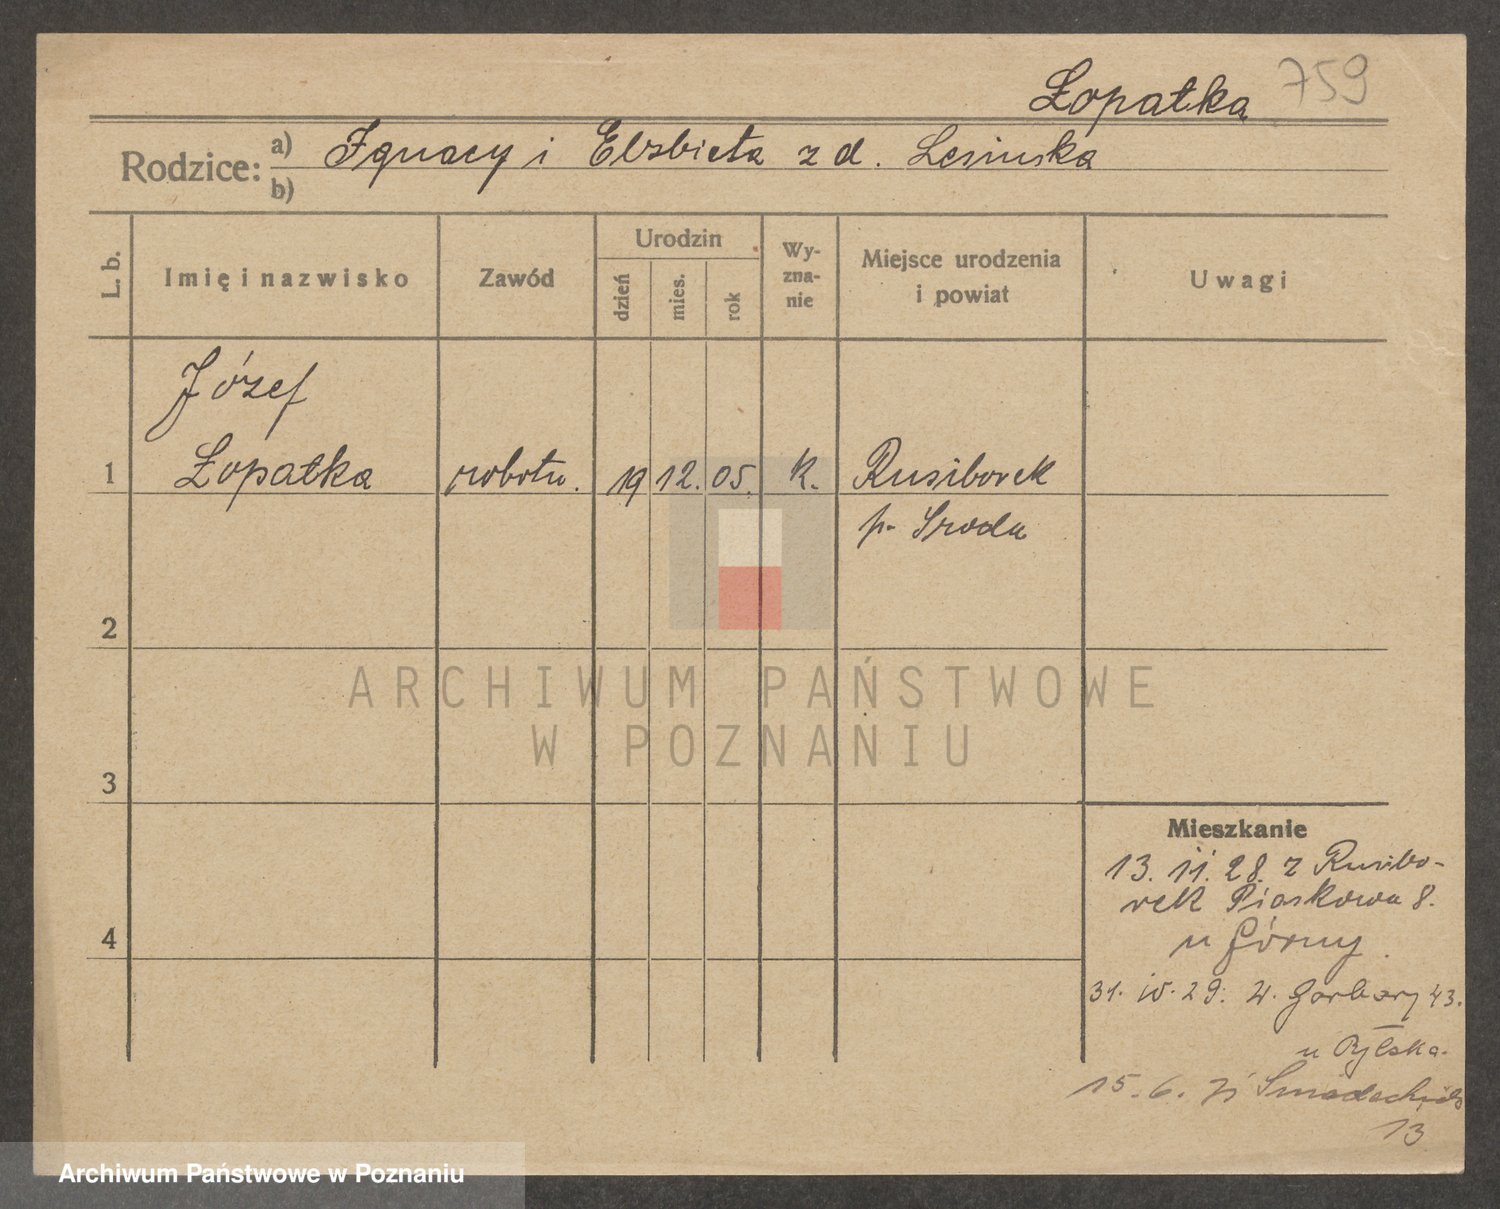 Łopatka 759
Rodzice: a) Ignacy i Elżbieta z d. Lesińska
b)
L. b.
Imię i nazwisko
Zawód
Urodzin
dzień
mies.
rok
Wy-
zna-
nie
Miejsce urodzenia
i powiat
Uwagi
Józef
1 Łopatka robotn. 19 12. 05. K. Rusiborek
p. Środa
2
3
4
Mieszkanie
13. 11. 28. z Rusibo-
rek Piaskowa 8.
u Górny
31. IV. 29. W. Garbary 43.
u Rylska.
15. 6.
13
ARCHIWUM PAŃSTWOWE
W POZNANIU
Archiwum Państwowe w Poznaniu